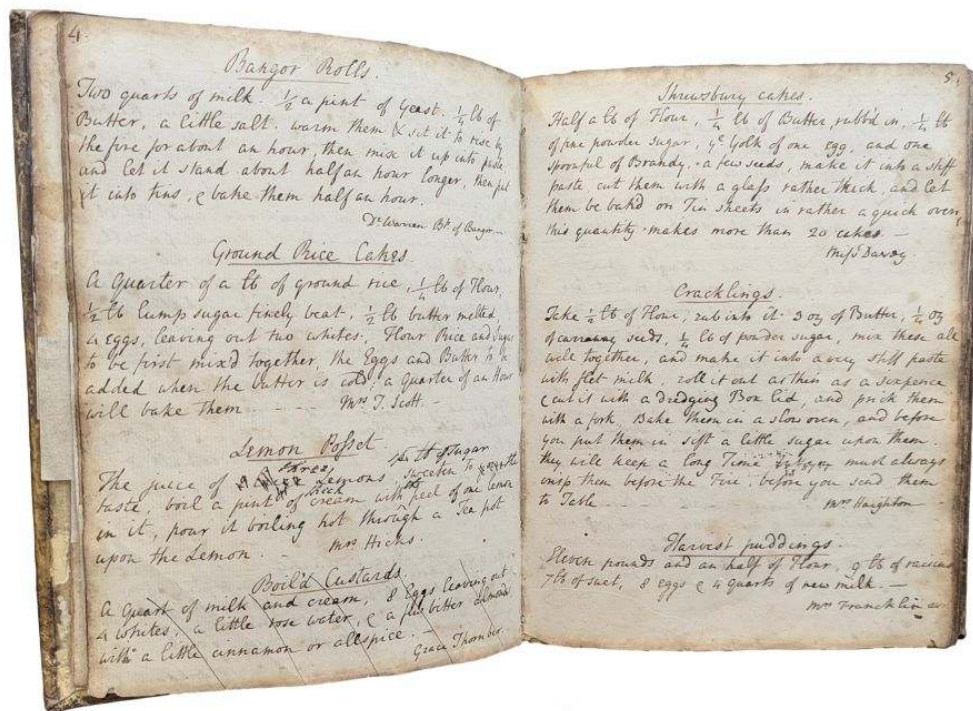 4.
Bangor Rolls.
Two quarts of milk. 1/2 a pint of Yeast. 1/4 lb of
Butter, a little salt. warm them & set it to rise by
the fire for about an hour, then mix it up into paste,
and let it stand about half an hour longer, then put
it into tins, & bake them half an hour.
Dr. Warren Bp. of Bangor
Ground Rice Cakes.
A Quarter of a lb of ground rice, 1/4 lb of Flour,
1/2 lb Lump sugar finely beat, 1/2 lb butter melted
4 eggs, leaving out two whites. Flour Rice and Sugar
to be first mix'd together, the Eggs and Butter to be
added when the butter is cold; a quarter of an Hour
will bake them
Mrs. T. Scott
Lemon Posset
three lb of Sugar
The juice of Lemons sweeten to the
thick
taste, boil a pint of cream with peel of one lemon
in it, pour it boiling hot through a Tea pot
upon the Lemon.
Mrs. Hicks.
Boil'd Custards.
A Quart of milk and cream, 8 Eggs leaving out
4 whites, a little rose water, & a few bitter almonds
with a little cinnamon or allspice.
Grace Thornber.
5.
Shrewsbury cakes.
Half a lb of Flour, 1/4 lb of Butter, rubb'd in, 1/4 lb
of fine powder sugar, ye Yolk of one egg, and one
spoonful of Brandy, a few seeds, make it into a stiff
paste, cut them with a glass rather thick, and let
them be bak'd on Tin sheets in rather a quick oven,
this quantity makes more than 20 cakes.
Miss Davey
Cracklings.
Take 1/2 lb of Flour, rub into it 3 oz of Butter, 1/4 oz
of carraway seeds, 1/4 lb of powder sugar, mix these all
well together, and make it into a very stiff paste
with flet milk, roll it out as thin as a sixpence
& cut it with a dredging Box lid, and prick them
with a fork, Bake them in a slow oven, and before
you put them in sift a little sugar upon them.
they will keep a long Time must always
crisp them before the Fire, before you send them
to Table
Mrs. Haighton
Harvest puddings.
Eleven pounds and an half of Flour, 9 lb of raisins
7 lb of suet, 8 eggs & 4 quarts of new milk.
Mrs Francklin